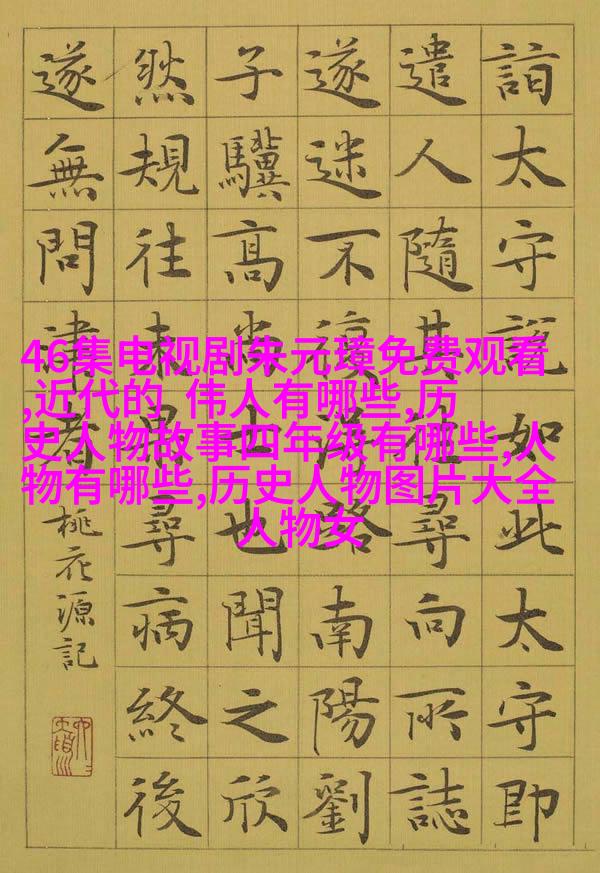 46集电视剧朱元璋免费观看
,近代的 伟人有哪些,历
史人物故事四年级有哪些,人
物有哪些,历史人物图片大全
人物女
詣太守說如此太守即
遣人隨其往尋向所誌
遂迷不復得路南陽劉
子驥高尚士也聞之欣
然規往未果尋病終後
遂無問津者
桃花源記